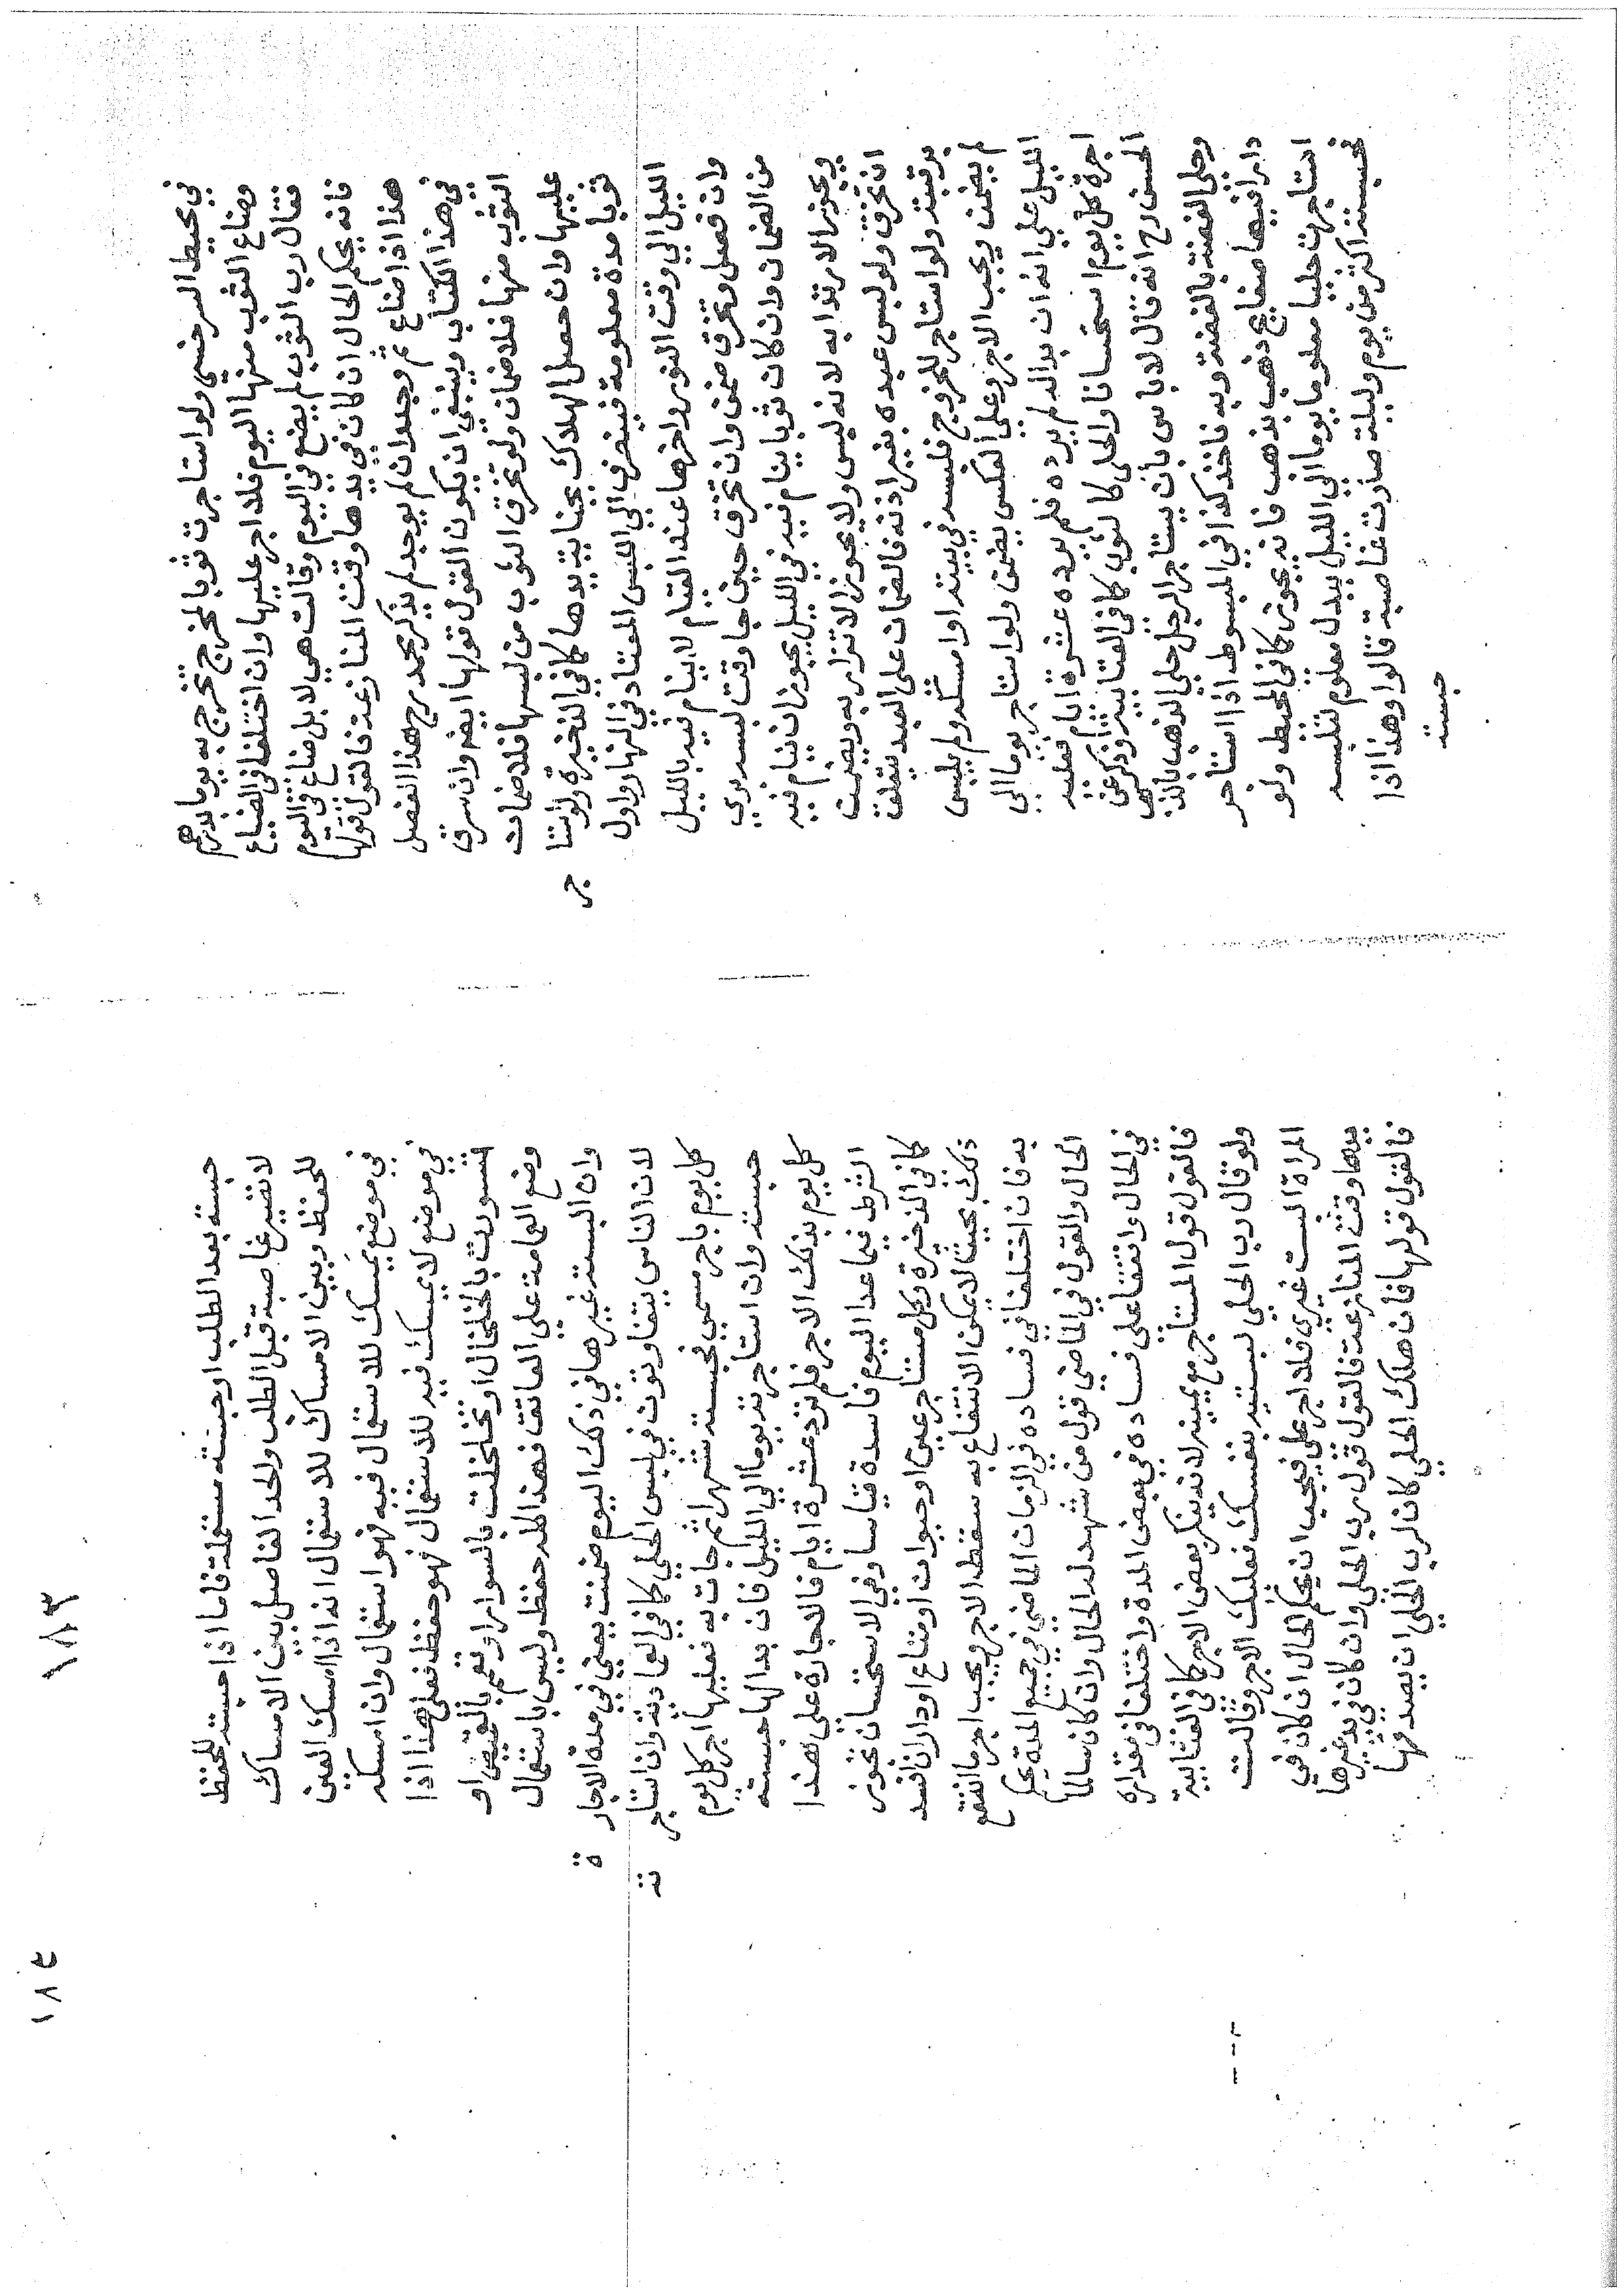 في محيط السرخسي ولو استاجرت ثوبا لتخرج تخرج به يوما بدرهم
وضاع الثوب منها اليوم فلا اجر عليها وان اختلفا في الضياع
فقال رب الثوب لم يضع في اليوم وقالت هي لا بل ضاع في اليوم
فانه يحكم الحال ان كان في يدها وقت المنازعة فالقول قولها
هذا اذا ضاع ثم وجد وان لم يوجد لم يذكر محمد رح هذا الفصل
في هذا الكتاب وينبغي ان يكون القول قولها ايضا وان سرق
الثوب منها فلا ضمان ولو تخرق الثوب من لبسها فلا ضمان
عليها وان حصل الهلاك بجناية يدها كما في الذخيرة ولو استا
جر
ثوبا مدة معلومة فينصرف الي اللبس المعتاد في النهار واول
الليل الي وقت النوم واخرها عند القيام لا ينام فيه بالليل
وان فعل وتخرق ضمن وان تخرق حين جا وقت لبسه بري
من الضمان وان كان ثوبا ينام فيه في الليل يجوز ان ينام فيه
ويجوز الارتدا به لانه لبس ولا يجوز الاتزار به ويضمن
ان تخرق ولو لبس عبده بغير اذنه فالضمان علي العبد يتعلق
برقبته ولو استاجر للخروج فلبسه في بيته او امسكه ولم يلبس
لم يضمن ويجب الاجر وعلي العكس يضمن ولو استاجر يوما الي
الليل علي انه ان بدا له لم يرده فلم يرده عشرة ايام فعليه
اجرة كل يوم استحسانا والحلي كالثوب كما في العتابية وذكر عن
الحسن رح انه قال لا باس بان يستاجر الرجل حلي الذهب بالذهب
وحلي الفضة بالفضة وبه ناخذ كذا في المبسوط اذا استاجر
دارا فيها صفايح ذهب بذهب فانه يجوز كما في المحيط ولو
استاجرت حليا معلوما يوما الي الليل ببدل معلوم لتلبسه
فحبسته اكثر من يوم وليلة صارت غاصبة قالوا وهذا اذا
حبسته
١٨٣
حبسته بعد الطلب او حبسته مستعملة فاما اذا حبسته للحفظ
لا تصير غاصبة قبل الطلب والحد الفاصل بين الامساك
للحفظ وبين الامساك للاستعمال انه اذا امسك العين
في موضع يمسك للاستعمال فيه فهو استعمال وان امسكه
في موضع لا يمسك فيه للاستعمال فهو حفظ فعلي هذا اذا
تسورت بالخلخال او تخلخلت بالسوار او تعمم بالقميص او
وضع العمامة علي العاتق فهذا كله حفظ وليس باستعمال
وان البسته غيرها في ذلك اليوم ضمنت يعني في مدة الاجار
ة
لان الناس يتفاوتون في لبس الحلي كما في العمادية وان استاجر
ته
كل يوم باجر مسمي فحبسته شهرا ثم جات به فعليها اجر كل يوم
حبسته وان استاجرته يوما الي الليل فان بدا لها حبسته
كل يوم بذلك الاجر فلم ترد عشرة ايام فالاجارة علي هذا
الشرط فيما عدا اليوم فاسدة قياسا وفي الاستحسان تجوز
كما في الذخيرة وكل مستاجر عبد او حيوان او متاع او دار ان فسد
ذلك بحيث لا يمكن الانتفاع به سقط الاجر ويجب اجر ما انتفع
به فان اختلفا في فساده في الزمان الماضي في جميع المدة يحكم
الحال والقول في الماضي قول من شهد له الحال وان كان سالما
في الحال واتفقا علي فساده في بعض المدة واختلفا في مقداره
فالقول قول المستاجر مع يمينه لانه ينكر بعض الاجر كما في العتابية
ولو قال رب الحلي لبستيه بنفسك فعليك الاجر وقالت
المراة البست غيري فلا اجر علي فيجب ان يحكم الحال ان كان في
يدها وقت المنازعة فالقول قول رب الحلي وان كان في يد غيرها
فالقول قولها فان هلك الحلي كان لرب الحلي ان يصدقها
١٨٤